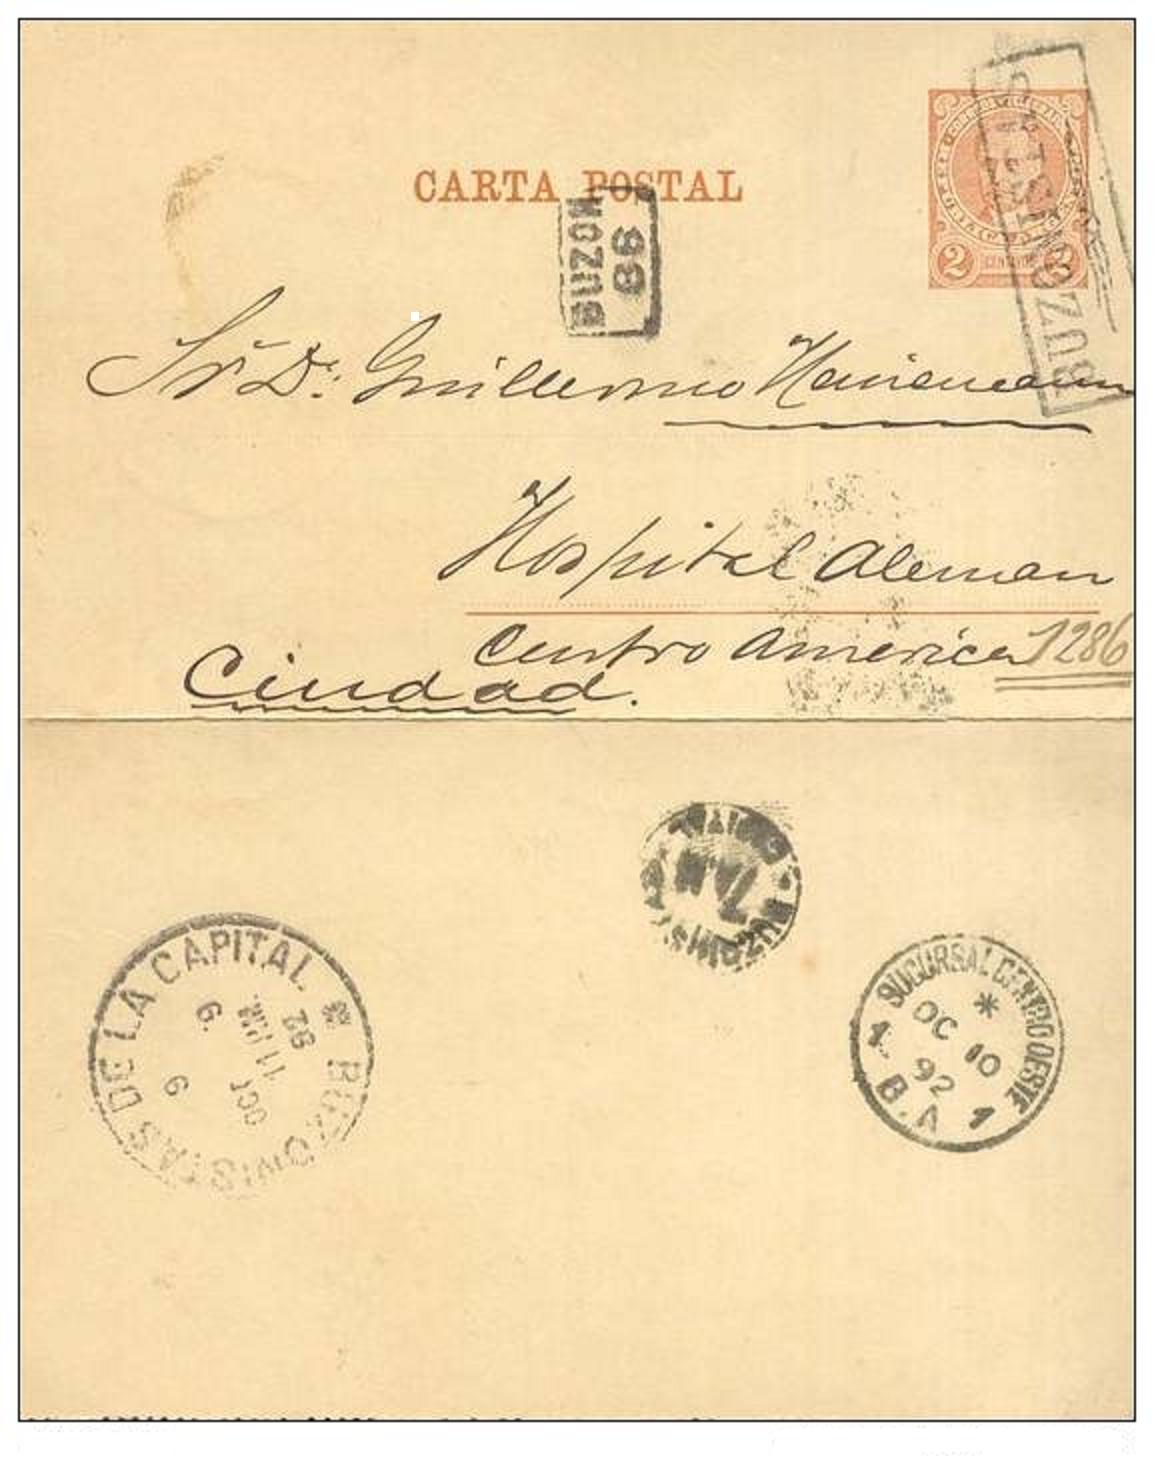 CARTA POSTAL
BUZON
86
2
CENTAVOS
2
BUZONISTAS
Sr. Dr: Guillermo
Hospital Aleman
Centro America 1286
Ciudad.
BUZONISTAS DE LA CAPITAL
92
11
OCT
9
6
SUCURSAL CENTRO OESTE
OC 10
92
1 B.A 1